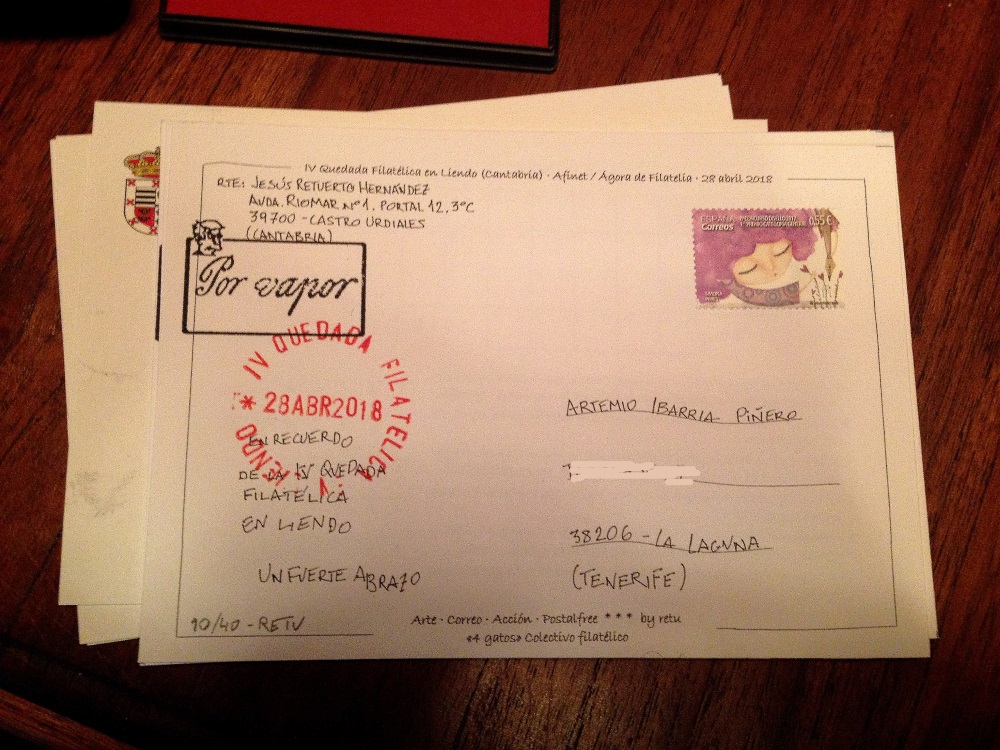 IV Quedada Filatélica en Liendo (Cantabria) · Afinet / Ágora de Filatelia · 28 abril 2018
RTE: JESÚS RETUERTO HERNÁNDEZ
AVDA. RIOMAR Nº1, PORTAL 12, 3ºC
39700 - CASTRO URDIALES
(CANTABRIA)
ESPAÑA
Correos
0,55€
Por vapor
IV QUEDADA FILATELICA
* 28ABR2018
EN RECUERDO
DE LA IV QUEDADA
FILATÉLICA
EN LIENDO
UN FUERTE ABRAZO
ARTEMIO IBARRIA PIÑERO
38206 - LA LAGUNA
(TENERIFE)
10/40 - RETU
Arte · Correo · Acción · Postalfree * * * by retu
«4 gatos» Colectivo filatélico